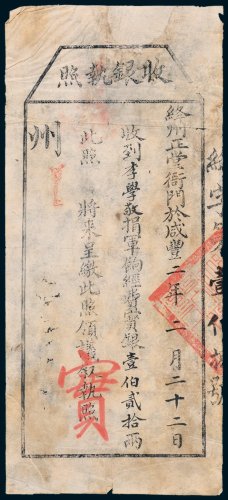 收銀執照
字第壹伯拾號
絳州正堂衙門於咸豐二年二月二十二日
收到李學敬捐軍餉經費實銀壹伯貳拾兩
此照 將來呈繳此照領 叙執照
州
實